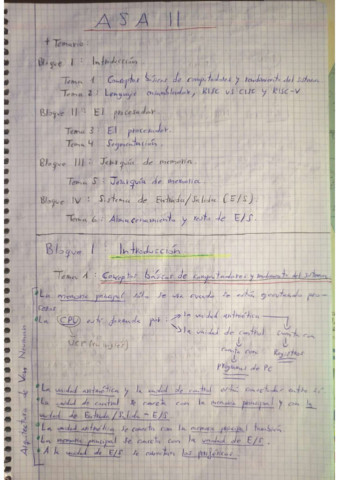 ASA II
+ Temario:
Bloque I: Introducción
Tema 1: Conceptos básicos de computadores y rendimiento del sistema
Tema 2: Lenguaje ensamblador, RISC vs CISC y RISC-V
Bloque II: El procesador.
Tema 3: El procesador.
Tema 4: Segmentación.
Bloque III: Jerarquía de memoria.
Tema 5: Jerarquía de memoria.
Bloque IV: Sistema de Entrada/Salida (E/S).
Tema 6: Almacenamiento y resto de E/S.
Bloque I Introducción
Tema 1: Conceptos básicos de computadores y rendimiento del sistema
Arquitectura de Von Neumann
• La memoria principal sólo se usa cuando se están ejecutando
• La CPU está formada por
la unidad aritmética
la unidad de control
cuenta con
cuenta con
Registros
Programas de PC
• La unidad aritmética y la unidad de control están conectadas entre sí
• La unidad de control se conecta con la memoria principal y con la
unidad de Entrada/Salida = E/S.
• La unidad aritmética se conecta con la memoria principal también.
• La memoria principal se conecta con la unidad de E/S.
• A la unidad de E/S. se conectan los periféricos.